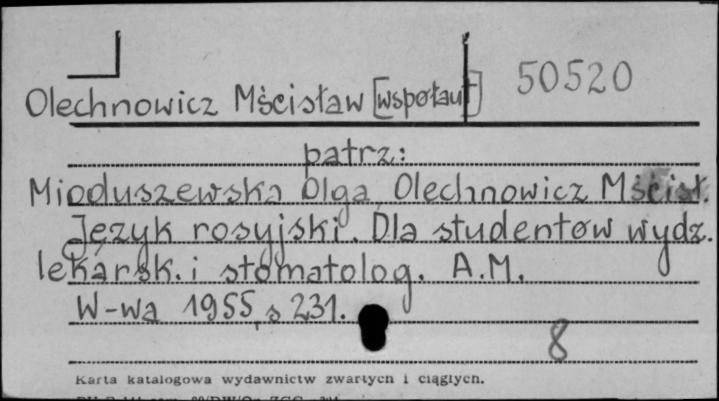 50520
Olechnowicz Mścisław [współaut]
patrz:
Mioduszewska Olga, Olechnowicz Mścisł.
Język rosyjski. Dla studentów wydz.
lekarsk. i stomatolog. A.M.
W-wa 1955, s 231.
8
Karta katalogowa wydawnictw zwartych i ciągłych.